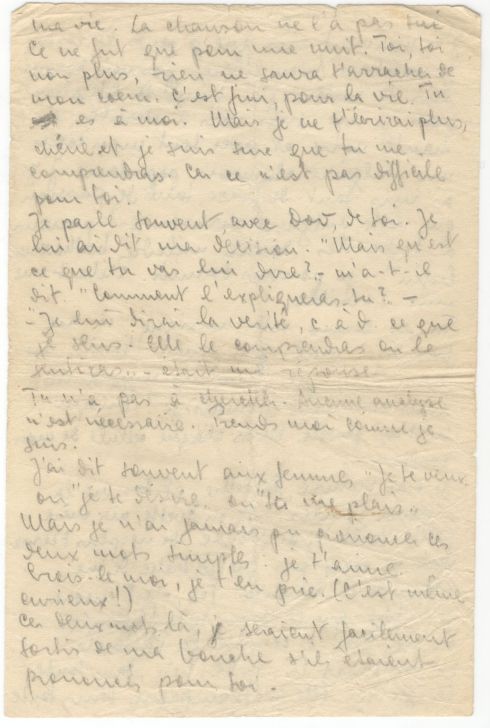 ma vie. La chanson ne l'a pas
Ce ne fut que pour une nuit. Toi, toi
non plus, rien ne saura t'arracher de
mon coeur. C'est fini, pour la vie. Tu
es a moi. Mais je ne t'écrirai plus,
chérie et je suis sure que tu me
comprendras. Car ce n'est pas difficile
pour toi.
Je parle souvent avec Dov, de toi. Je
lui ai dit ma decision. "Mais qu'est
ce que tu vas lui dire? - m'a-t-il
dit. "Comment l'expliqueras-tu? -
- "Je lui dirai la verité, c. à d. ce que
je sens. Elle le comprendras ou le
sentiras.. - était ma réponse
Tu n'a pas à chercher. Aucune analyse
n'est nécessaire. Prends moi comme je
suis.
J'ai dit souvent aux femmes "Je te veux
ou "je te désire ou "tu me plais..
Mais je n'ai jamais pu prononcer ces
deux mots simples je t'aime.
Crois-le moi, je t'en prie. (C'est même
curieux!)
Ces deux mots là, seraient facilement
sortis de ma bouche s'ils étaient
prononcés pour toi.